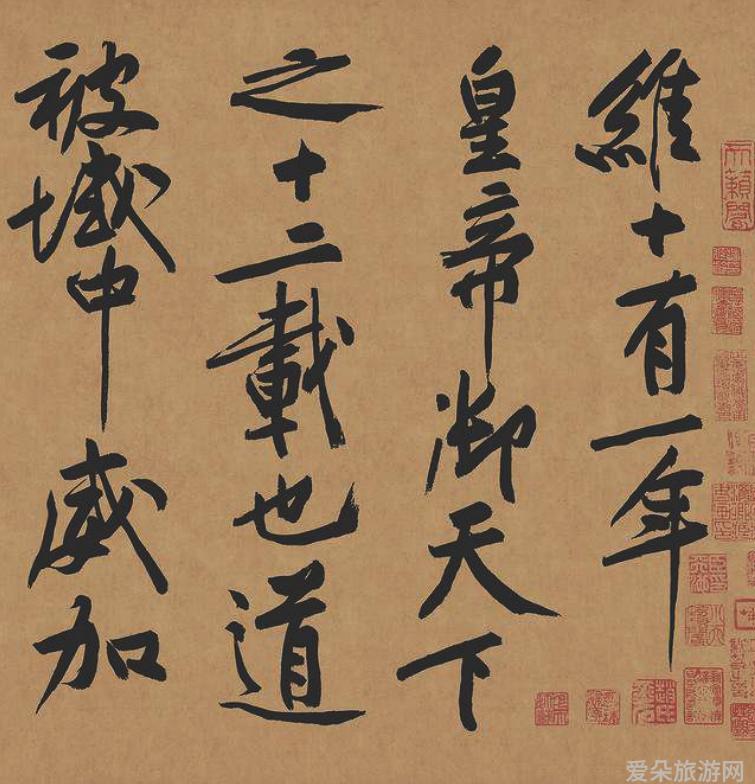 維十有一年
皇帝御天下
之十二載也道
被域中威加
爱朵旅游网